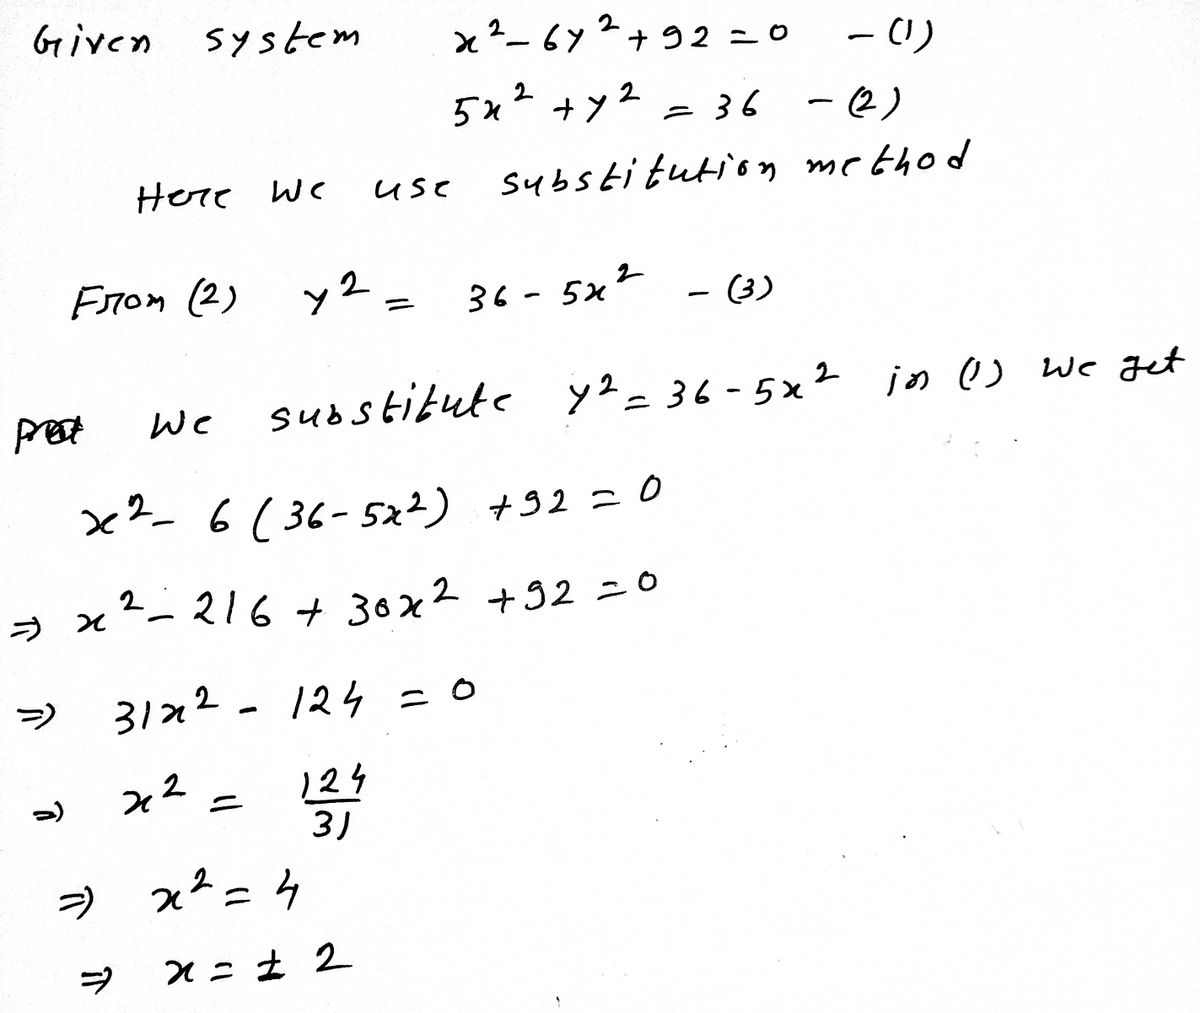 Given system x² - 6y² + 92 = 0 - (1)
5x² + y² = 36 - (2)
Here we use substitution method
From (2) y² = 36 - 5x² - (3)
we substitute y² = 36 - 5x² in (1) we get
x² - 6 (36 - 5x²) + 92 = 0
⇒ x² - 216 + 30x² + 92 = 0
⇒ 31x² - 124 = 0
⇒ x² = 124/31
⇒ x² = 4
⇒ x = ± 2